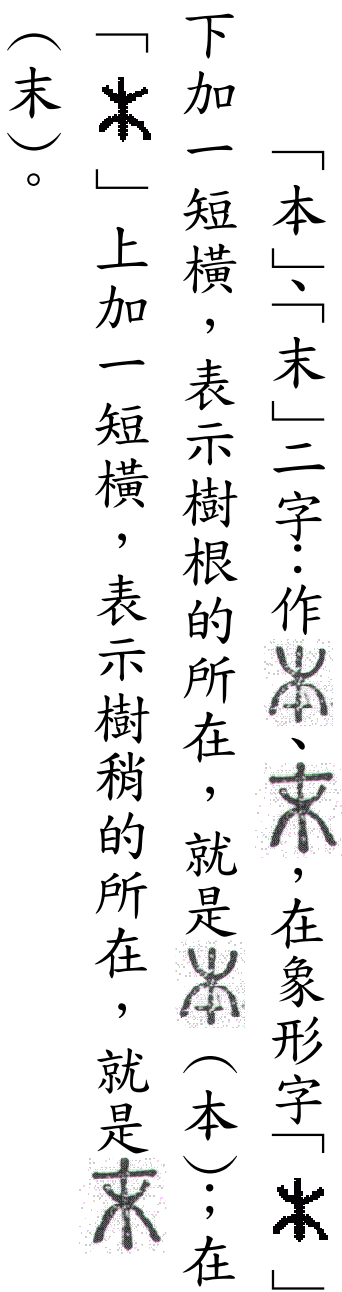 「本」、「末」二字：作𣎵、末，在象形字「木」
下加一短橫，表示樹根的所在，就是本（本）；在
「木」上加一短橫，表示樹稍的所在，就是末
（末）。